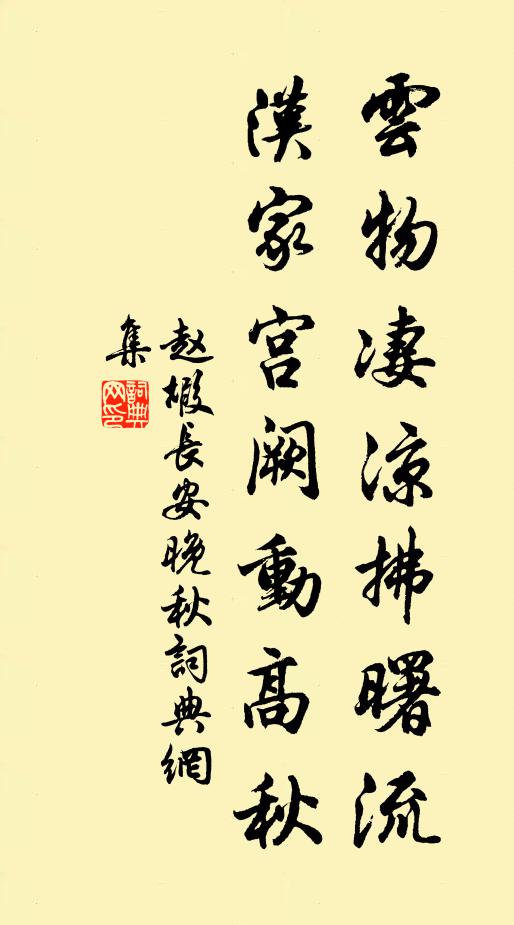 雲物凄涼拂曙流
漢家宫闕動高秋
赵嘏長安晚秋詞典網
集
詞典
网印